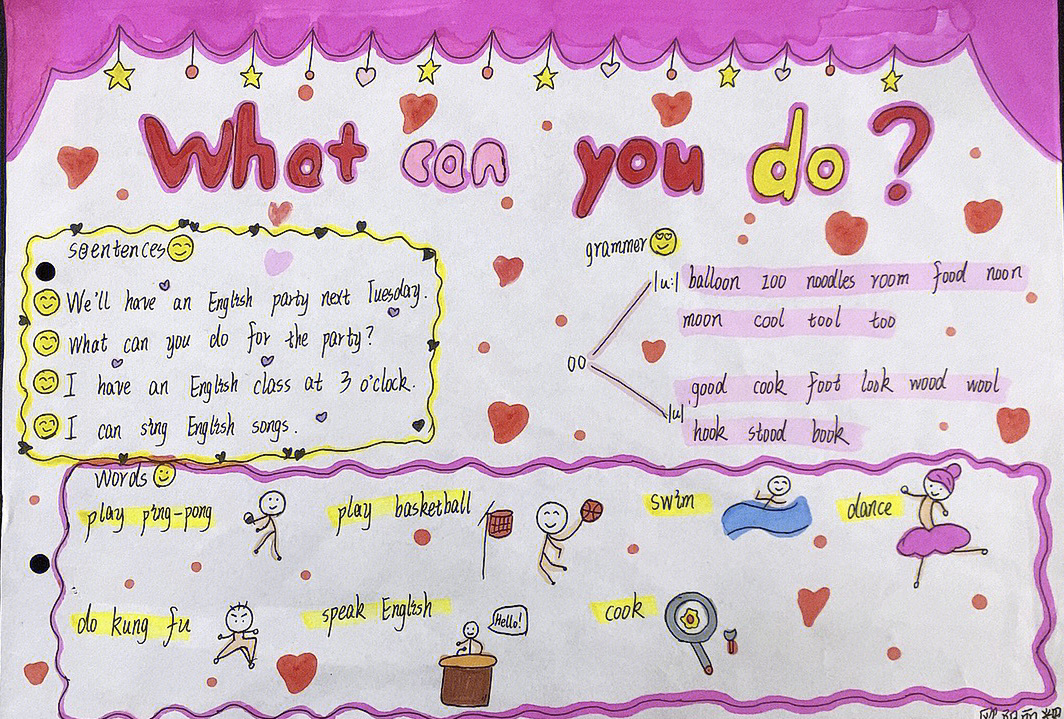 What can you do?
sentences
We'll have an English party next Tuesday.
What can you do for the party?
I have an English class at 3 o'clock.
I can sing English songs.
grammer
oo
|u:| balloon zoo noodles room food noon
moon cool tool too
|u| good cook foot look wood wool
hook stood book
words
play ping-pong
play basketball
swim
dance
do kung fu
speak English
Hello!
cook